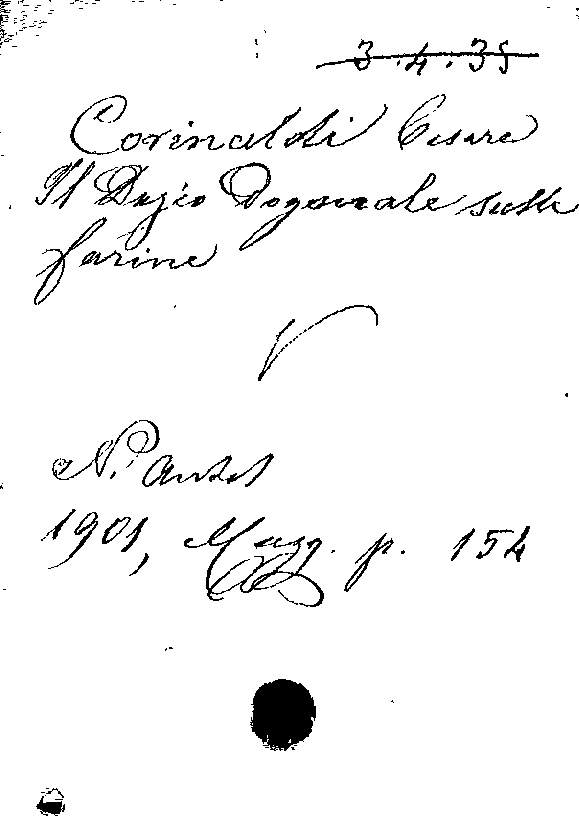 3.4.35
Corinaldi Cesare
Il Dazio Doganale sulle
farine
V
N. Antol
1901, Magg. p. 154